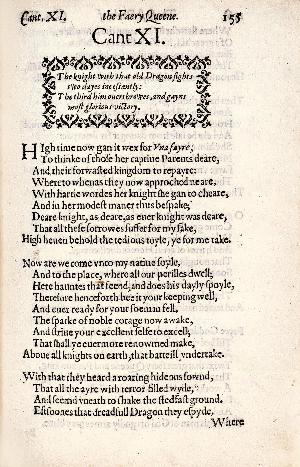 Cant. XI.
the Faery Queene.
155
Cant XI.
The knight with that old Dragon fights
two dayes incessantly:
The third him overthrowes, and gayns
most glorious victory.
HIgh time now gan it wex for Vna fayre,
To thinke of those her captiue Parents deare,
And their forwasted kingdom to repayre:
Whereto whenas they now approched neare,
With hartie wordes her knight she gan to cheare,
And in her modest maner thus bespake;
Deare knight, as deare, as euer knight was deare,
That all these sorrowes suffer for my sake,
High heuen behold the tedious toyle, ye for me take.
Now are we come vnto my natiue soyle,
And to the place, where all our perilles dwell;
Here hauntes that feend, and does his dayly spoyle,
Therefore henceforth bee it your keeping well,
And euer ready for your foeman fell.
The sparke of noble corage now awake,
And striue your excellent selfe to excell;
That shall ye euermore renowmed make,
Aboue all knights on earth, that batteill vndertake.
With that they heard a roaring hideous sownd,
That all the ayre with terror filled wyde,
And seemd vneath to shake the stedfast ground.
Eftsoones that dreadfull Dragon they espyde,
Where